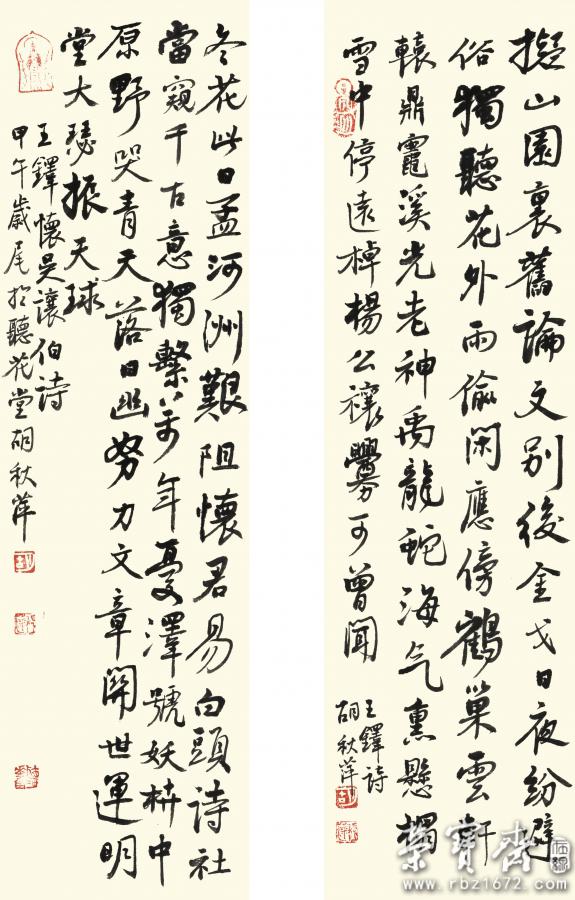 擬山園裏舊論文别後金戈日夜紛避
俗獨聽花外雨偷閑應傍鶴巢雲軒
轅鼎竈溪光老神禹龍蛇海气熏懸榻
雪中停遠棹楊公禳釁可曾聞
王鐸詩
胡秋萍
冬花此日孟河洲艱阻懷君易白頭詩社
當窺千古意獨繫年憂澤號妖中
原野哭青天落日幽努力文章開世運明
堂大瑟振天球
王鐸懷吴讓伯詩
甲午歲尾於聽花堂胡秋萍
榮寶齋
www.rbz1672.com